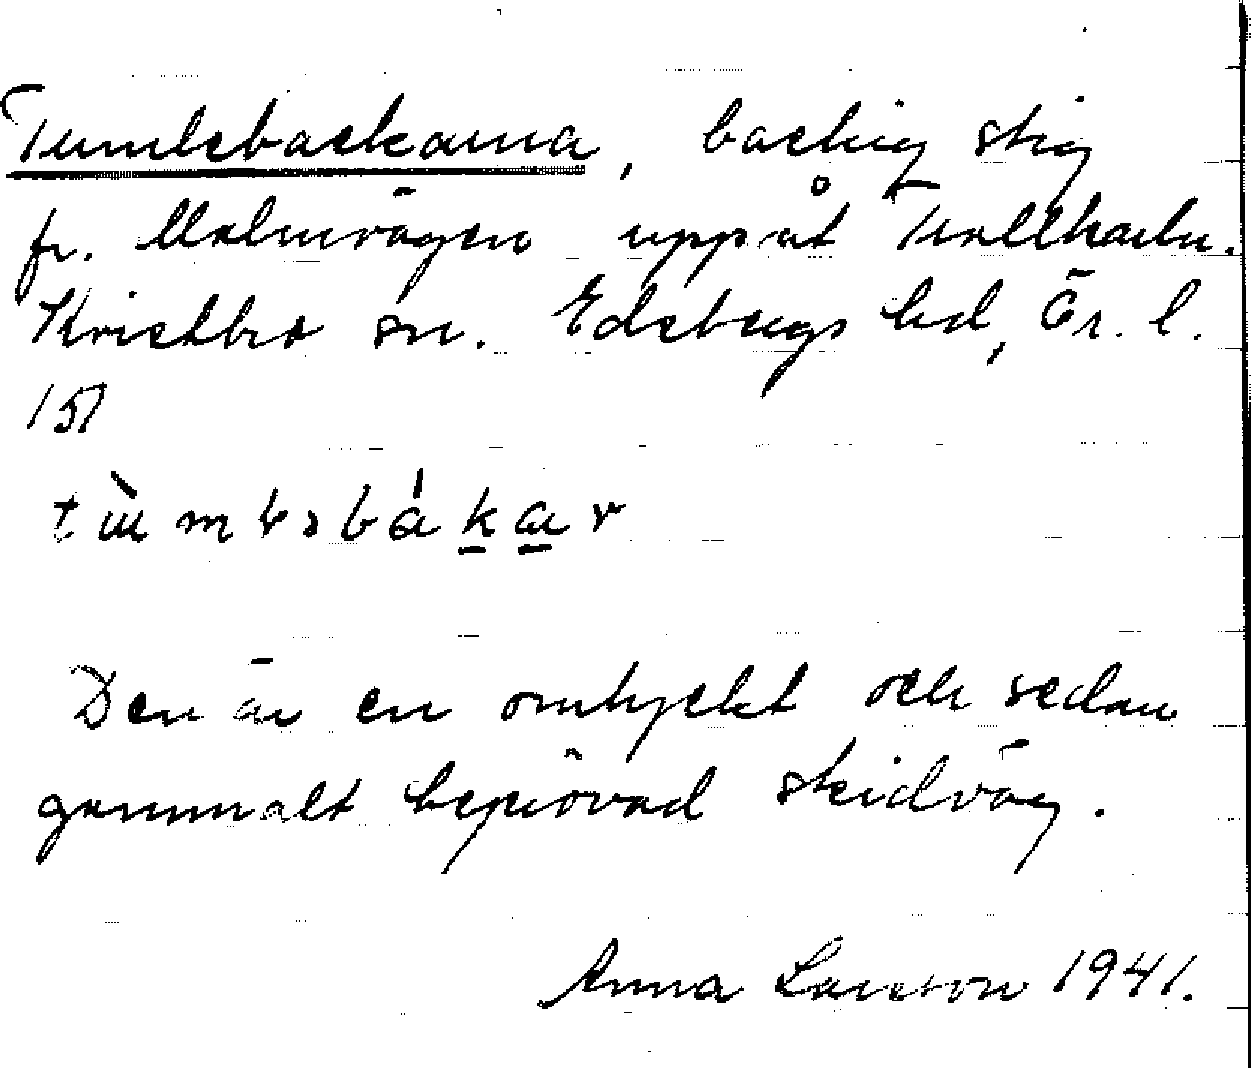 Tumlebackarna, backig stig
fr. Malmvägen uppåt Trollkarln.
Kvistbro sn. Edsbergs hd, Ör. l.
151
Den är en omtyckt och sedan
gammalt beprövad skidväg.
Anna Larsson 1941.